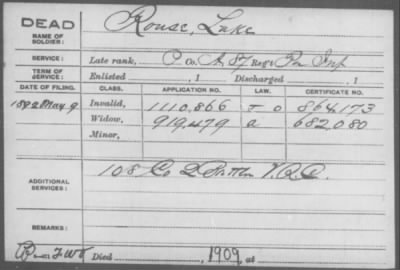 DEAD
NAME OF SOLDIER: Rouse, Luke
SERVICE: Late rank, P Co. A, 87 Reg't Pa Inf
TERM OF SERVICE: Enlisted , 1 Discharged , 1
DATE OF FILING. CLASS. APPLICATION NO. LAW. CERTIFICATE NO.
1892 May 9 Invalid, 1110,866 J O 864,173
Widow, 919,479 a 682,080
Minor,
ADDITIONAL SERVICES: 108 Co 2 Battn V.R.C.
REMARKS:
Died , 1909, at